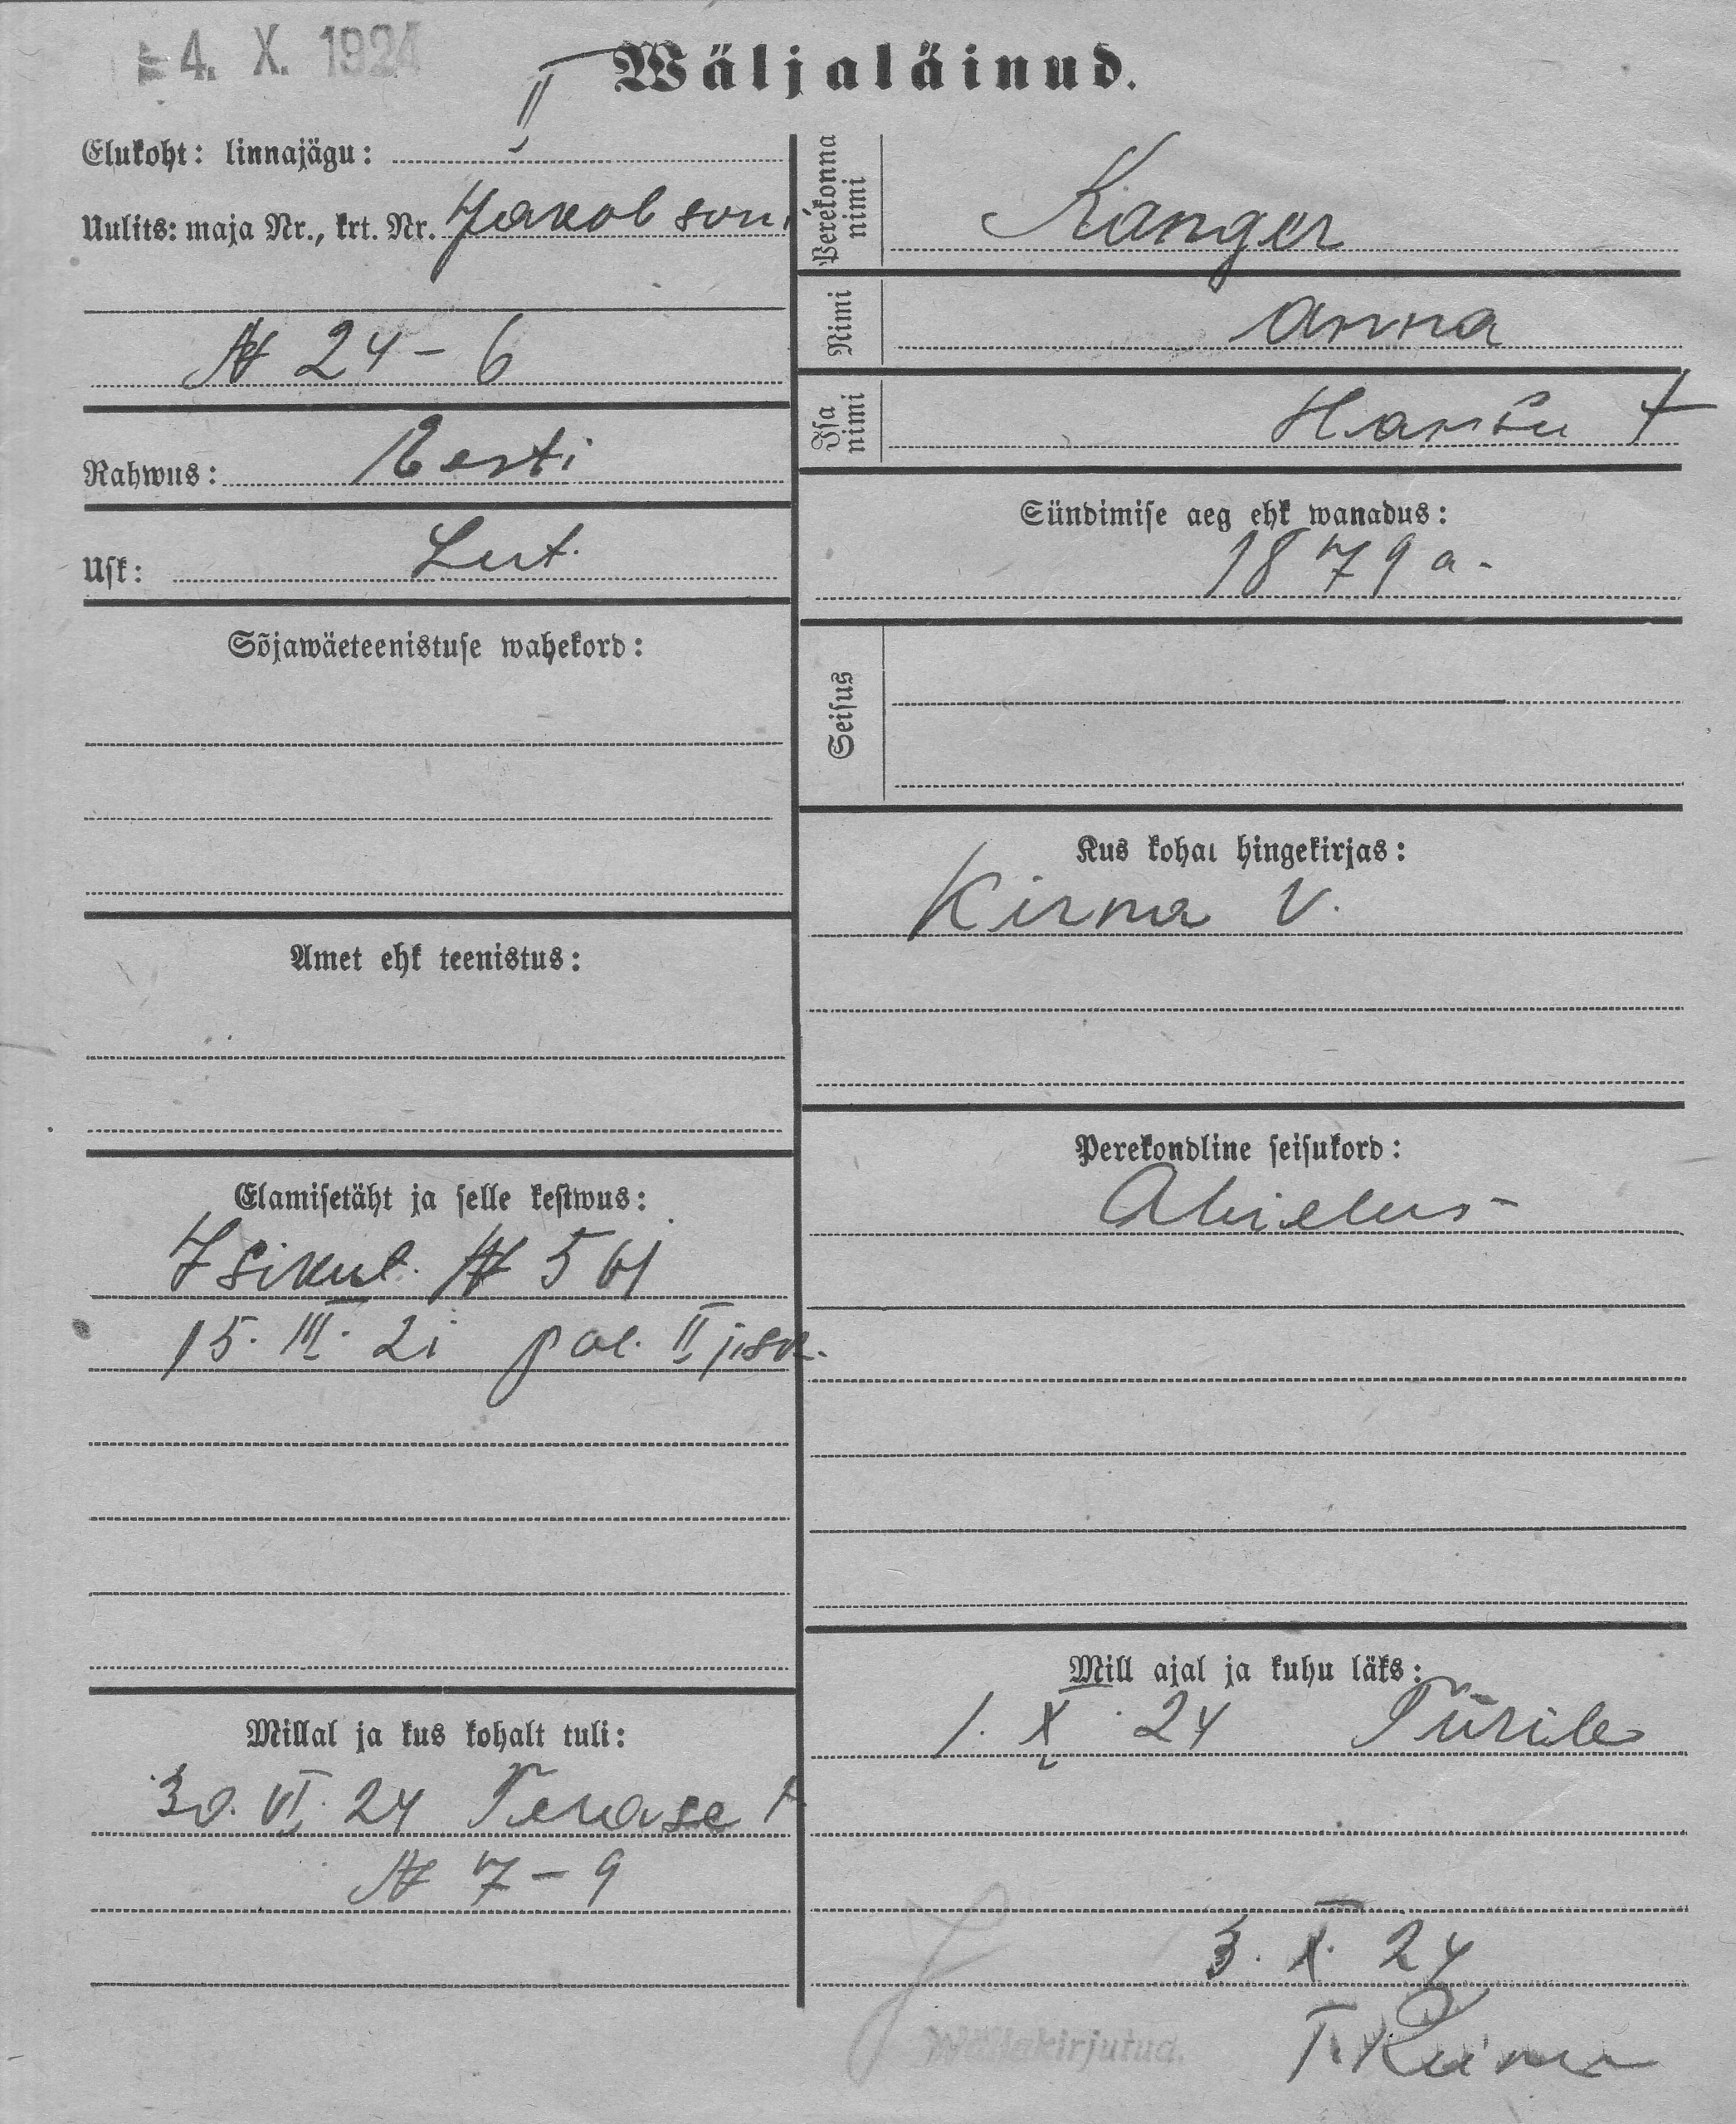 4. X. 1924
Wäljaläinud.
Elukoht: linnajägu: II
Uulits: maja Nr., krt. Nr. Jakobsoni
№ 24-6
Rahwus: Eesti
Usk: Lut.
Sõjawäeteenistuse wahekord:
Amet ehk teenistus:
Elamisetäht ja selle kestwus:
Isikut. № 561
15. III. 21 pol. II jisk.
Millal ja kus kohalt tuli:
30. VI. 24 Terase t.
№ 7-9
Perekonna nimi Kanger
Nimi Anna
Isa nimi Hansu t
Sündimise aeg ehk wanadus:
1879 a.
Seisus
Kus kohal hingekirjas:
Kirna V.
Perekondline seisukord:
Abielus
Mill ajal ja kuhu läks:
1. X. 24 Türile
3. X. 24
Wäljakirjutud.